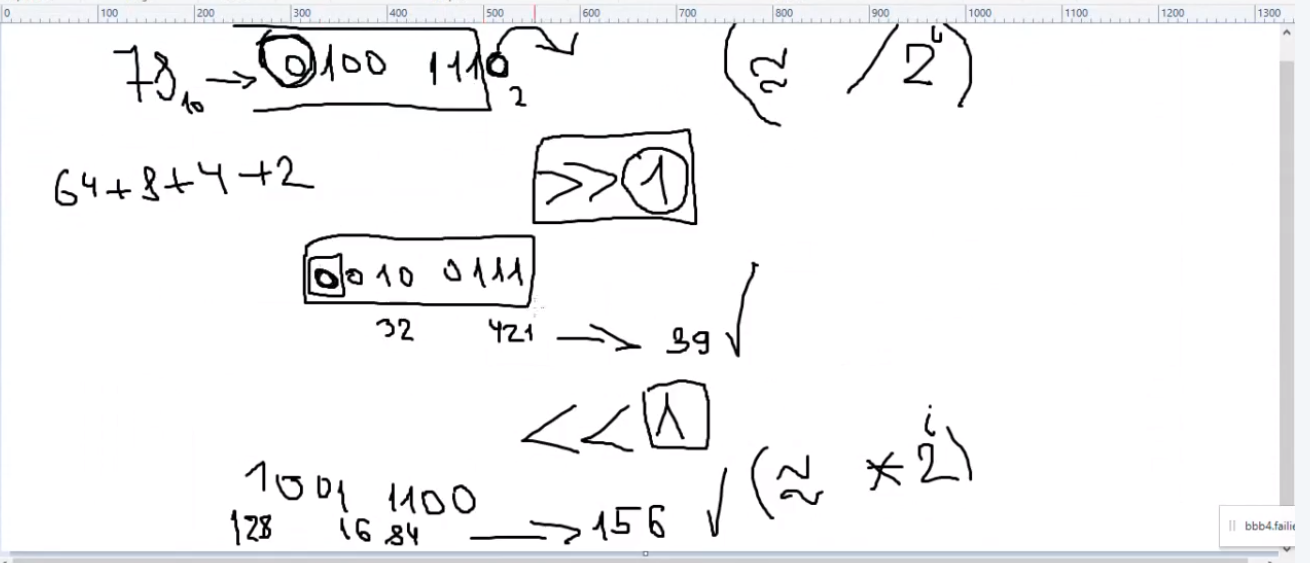 0 100 200 300 400 500 600 700 800 900 1000 1100 1200 1300
78₁₀ → 0100 1110₂ (≈ / 2ⁱ)
64+8+4+2
>> 1
0010 0111
32 421 → 39 ✓
<< 1
1001 1100
128 16 84 → 156 ✓ (≈ * 2ⁱ)
bbb4.failie